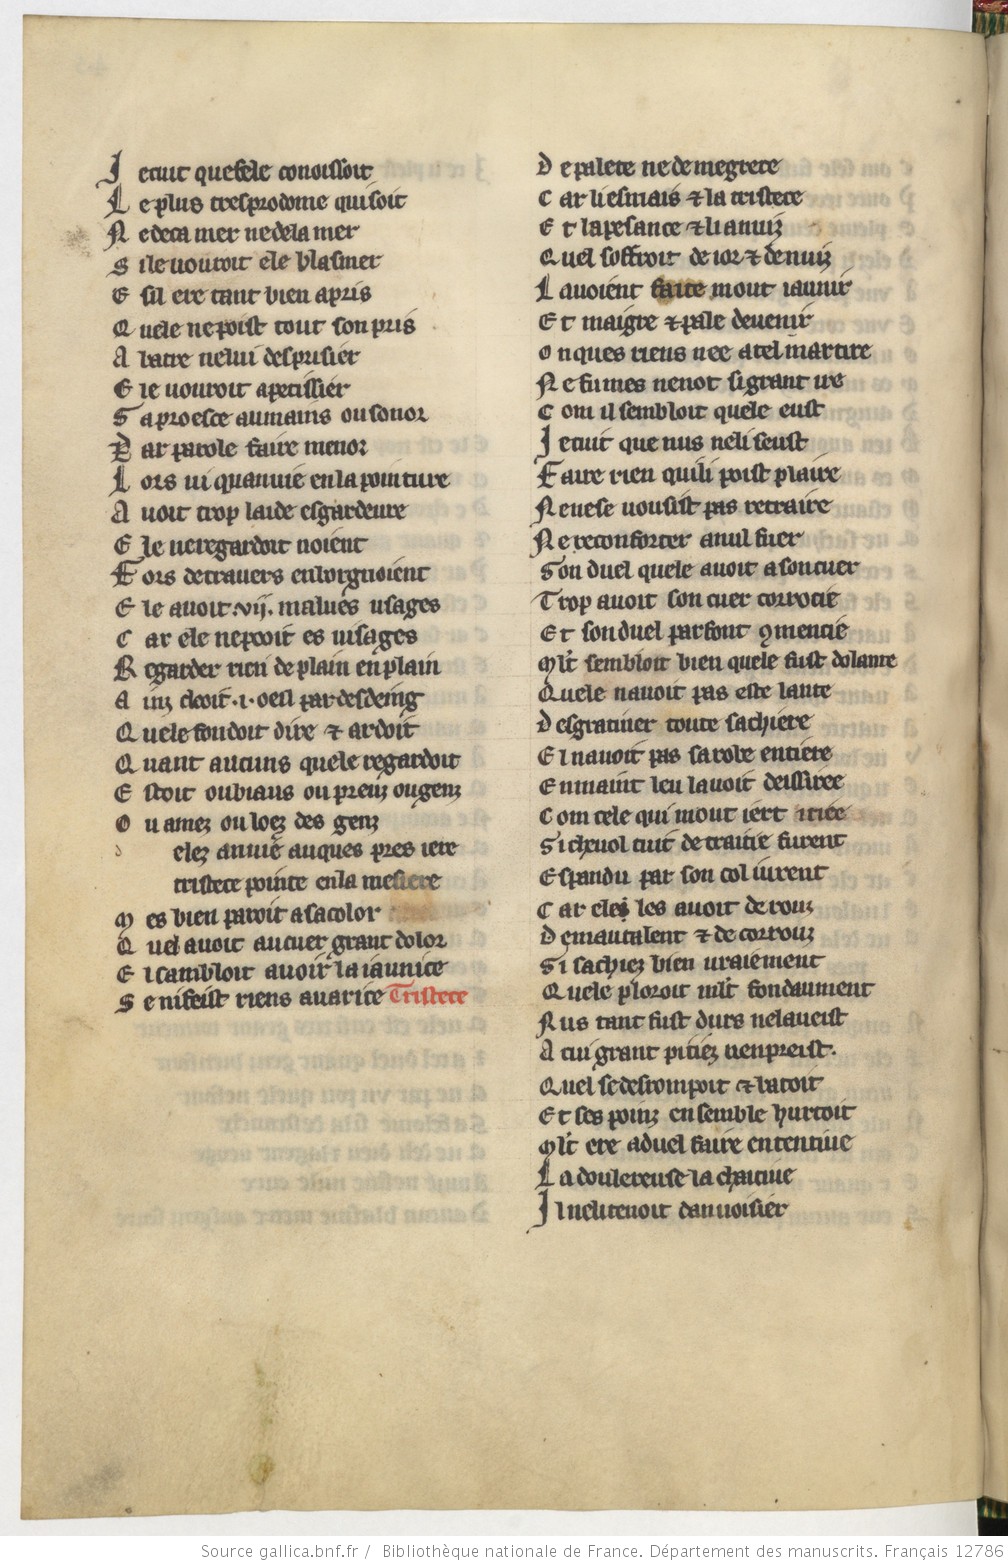 J e cuit que sele conoissoit
L e plus tres prodome qui soit
N e deca mer ne dela mer
S i le uouroit ele blasmer
E sil ere tant bien apris
Q uele ne poist tout son pris
A batre ne lui desprisier
E le uouroit apetissier
S a proesce au mains ou sonor
P ar parole faire menor
L ors ui quanuie en la pointure
A uoit trop laide esgardeure
E le ne regardoit noient
F ors de trauers en lorgnoient
E le auoit .vij. malues usages
C ar ele ne pooit es uisages
R egarder rien de plain en plain
A inz clooit .i. oeil par desdeing
Q uele fondoit dire ⁊ ardoit
Q uant aucuns quele regardoit
E stoit ou biaus ou preuz ou genz
O u amez ou loez des genz
elez anuie auques pres iere
tristece pointe en la mesiere
M es bien paroit a sa color
Q uel auoit au cuer grant dolor
E l sambloit auoir la iaunice
S e ni feist riens auarice Tristece
D e palete ne de megrece
C ar li esmais ⁊ la tristece
E t la pesance ⁊ li anuiz
Q uel soffroit de ior ⁊ de nuiz
L auoient faite mout iaunir
E t maigre ⁊ pale deuenir
O nques riens nee a tel martire
N e fu mes ne not si grant ire
C om il sembloit quele eust
J e cuit que nus ne li seust
F aire rien qui li poist plaire
N e ne se uousist pas retraire
N e reconforter a nul fuer
S on duel quele auoit a son cuer
T rop auoit son cuer corrocie
E t son duel parfont 9mencie
Mlt sembloit bien quele fust dolante
Q uele nauoit pas este lante
D esgratiner toute sa chiere
E l nauoit pas sa robe entiere
E n maint leu lauoit dessiree
C om cele qui mout iert iriee
S i cheuol tuit detraitie furent
E spandu par son col iurent
C ar eles les auoit derouz
D e mautalent ⁊ de corrouz
S i sachiez bien uraiement
Q uele ploroit mlt fondaument
N us tant fust durs ne laueist
A cui grant pitiez nen preist.
Q uel se desrompoit ⁊ batoit
E t ses poinz ensemble hurtoit
Mlt ere a duel faire ententiue
L a doulereuse la chaitiue
J l ne li tenoit danuoisier
Source gallica.bnf.fr / Bibliothèque nationale de France. Département des manuscrits. Français 12786